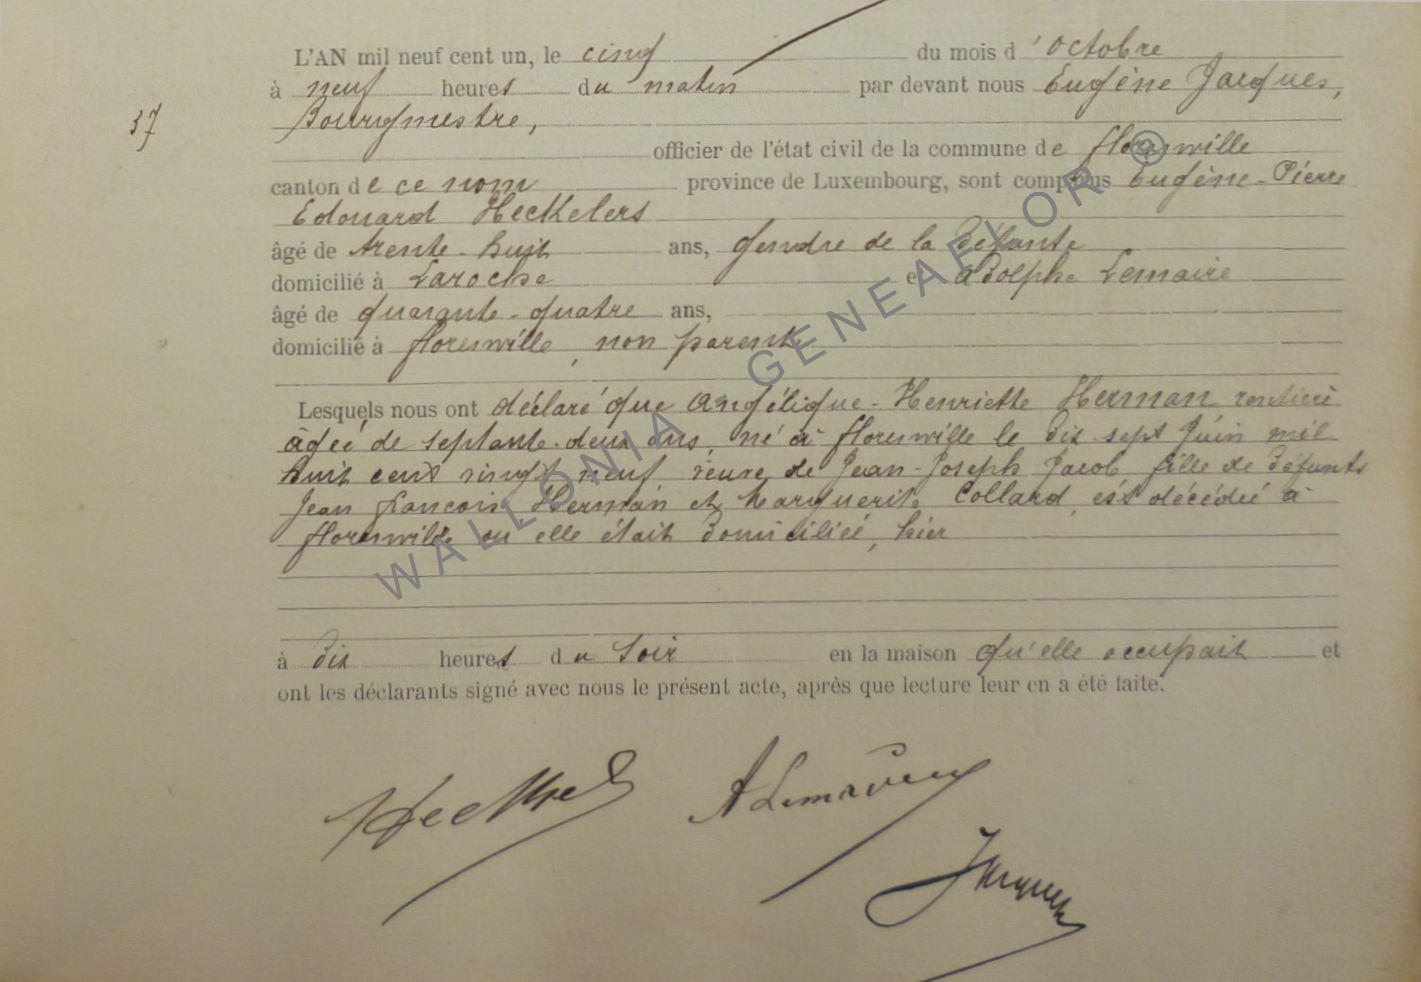 L'AN mil neuf cent un, le cinq du mois d'octobre
à neuf heures du matin par devant nous Eugène Jacques,
37
Bourgmestre,
officier de l'état civil de la commune de florenville
canton de ce nom province de Luxembourg, sont comparus Eugène-Pierre
Edouard Heckelers
âgé de trente-huit ans, gendre de la défunte
domicilié à Laroche et Adolphe Lemaire
âgé de quarante-quatre ans,
domicilié à florenville, non parent
Lesquels nous ont déclaré que Angélique-Henriette Herman rentière
âgée de septante-deux ans, né à florenville le dix sept Juin mil
huit cent vingt neuf, veuve de Jean-Joseph Jacob, fille de défunts
Jean françois Herman et Marguerite Collard, est décédée à
florenville ou elle était domiciliée, hier
à dix heures du soir en la maison qu'elle occupait et
ont les déclarants signé avec nous le présent acte, après que lecture leur en a été faite.
A Lemaire
Jacques
WALLONIA GENEAFLOR ®